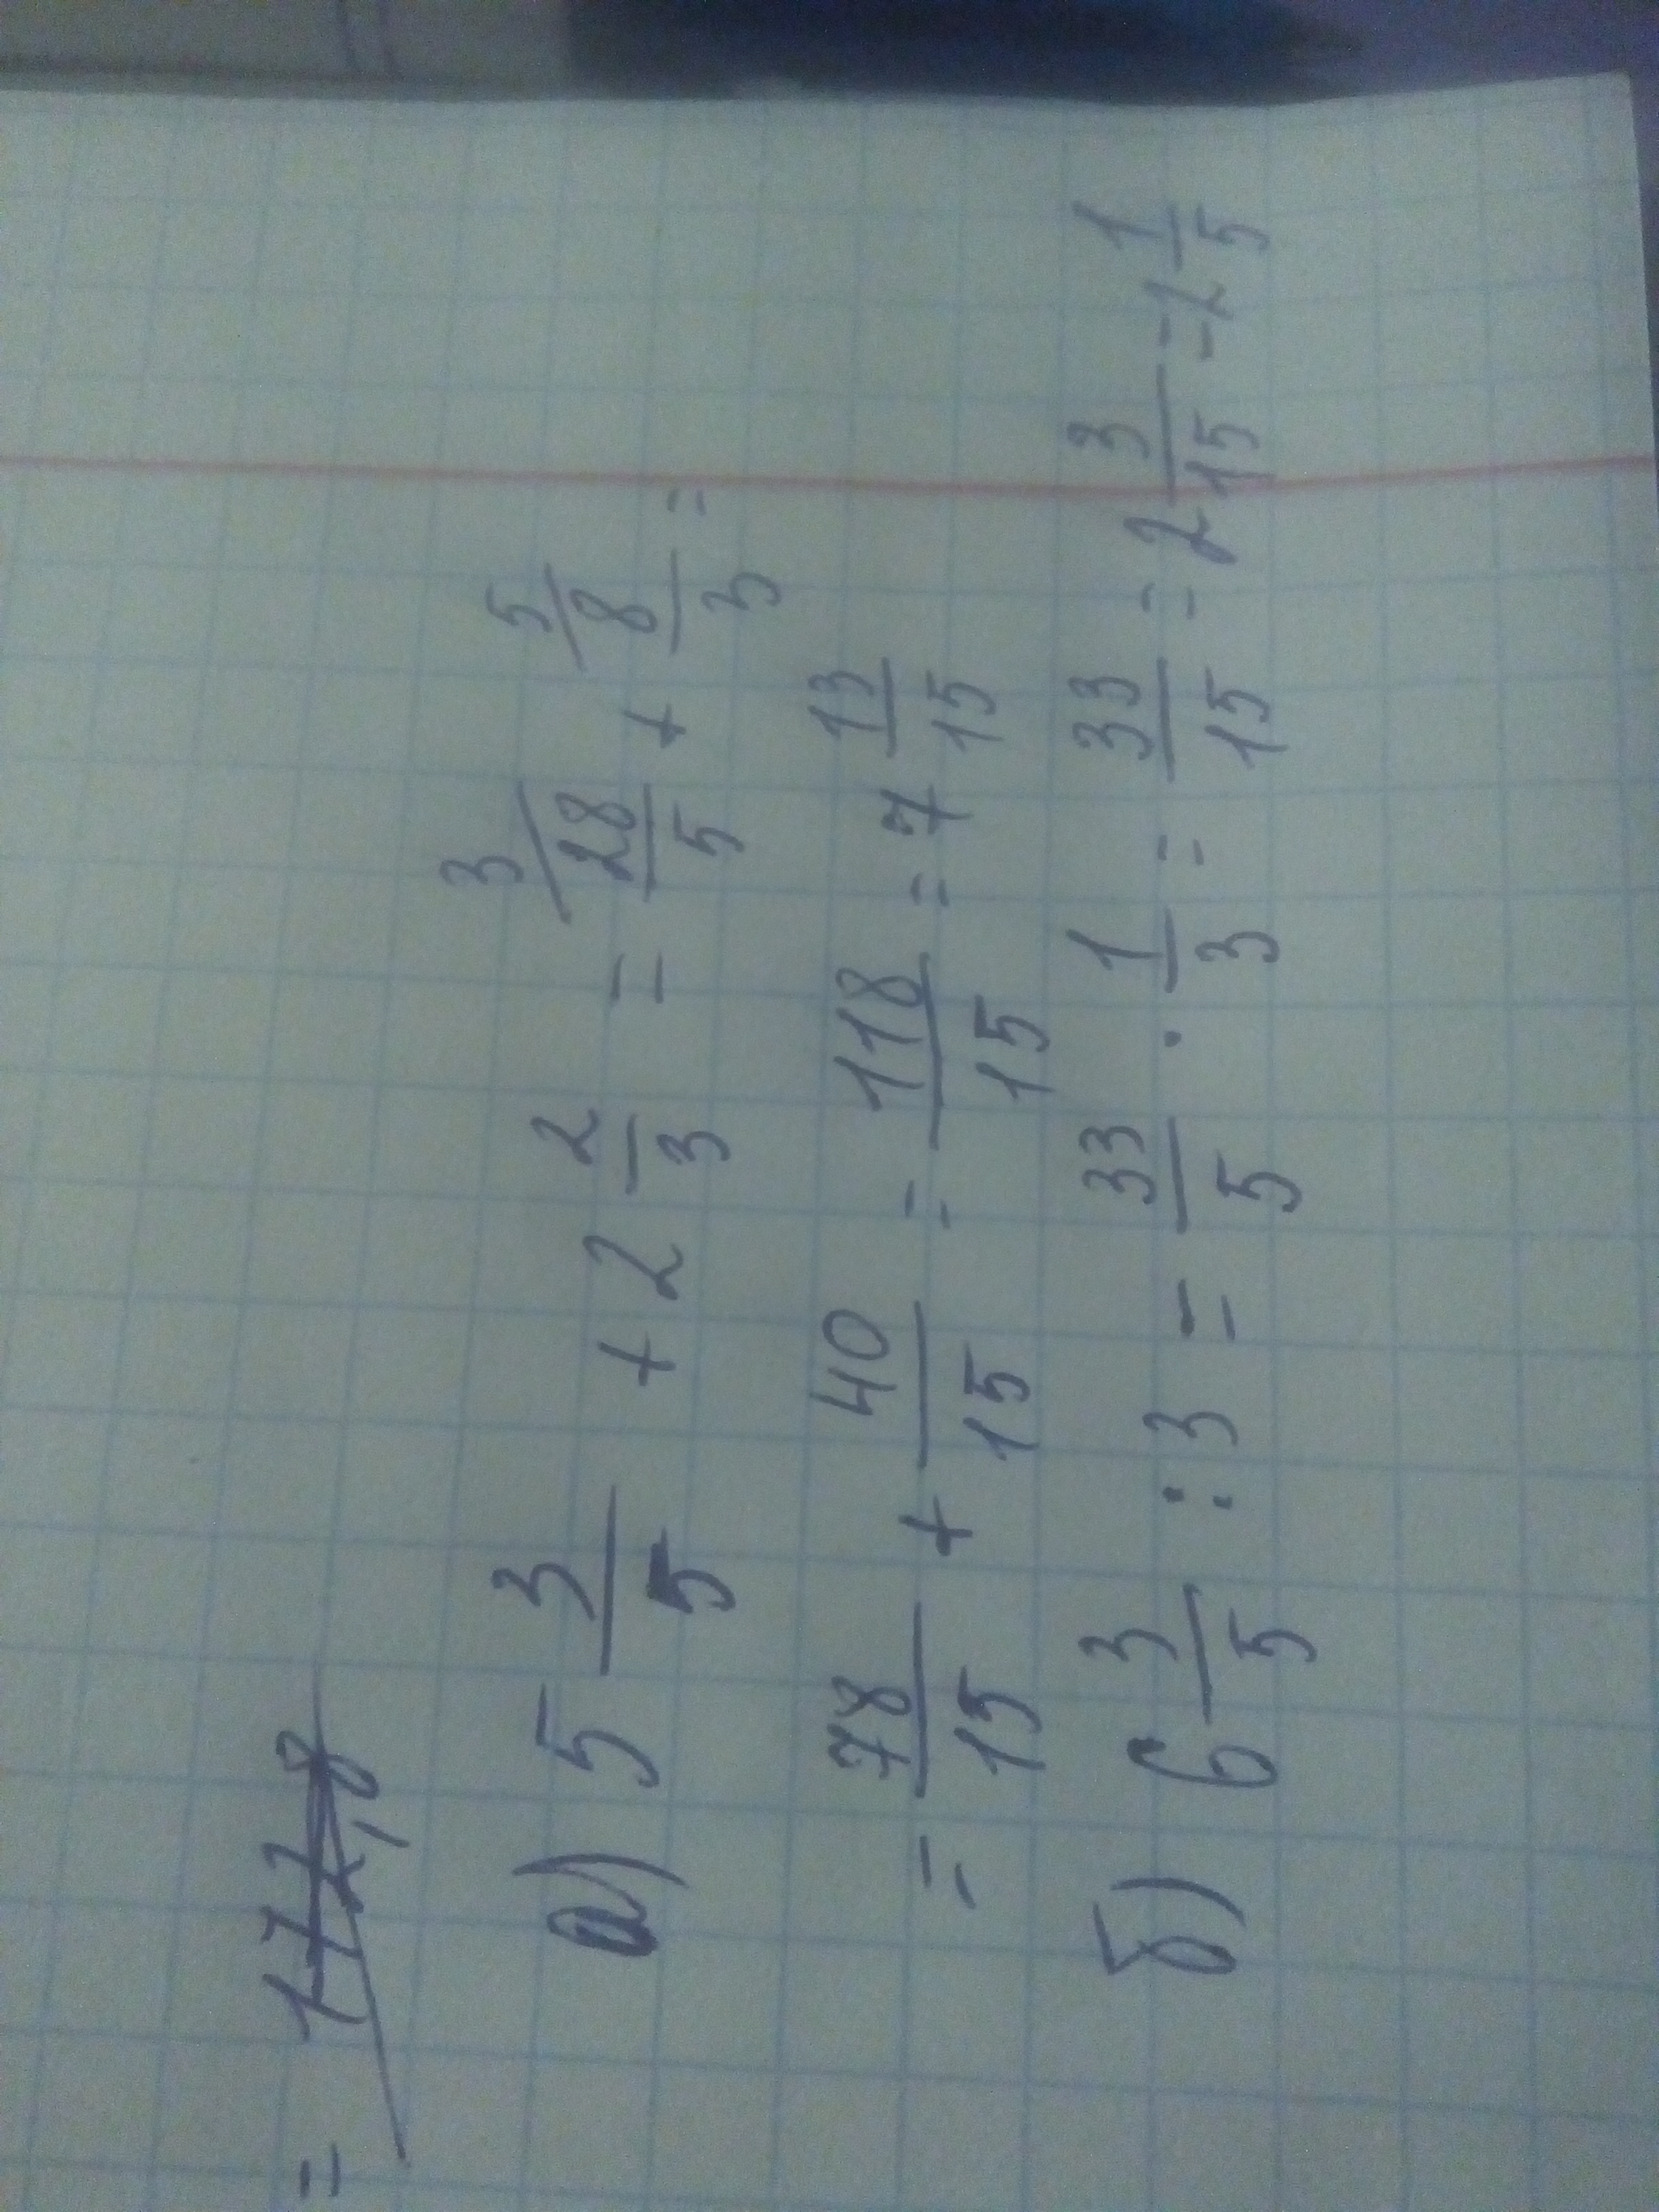 =
а) 5 3/5 + 2 2/3 = 28/5 (3 + 8/3 (5 =
= 78/15 + 40/15 = 118/15 = 7 13/15
б) 6 3/5 : 3 = 33/5 · 1/3 = 33/15 = 2 3/15 = 2 1/5